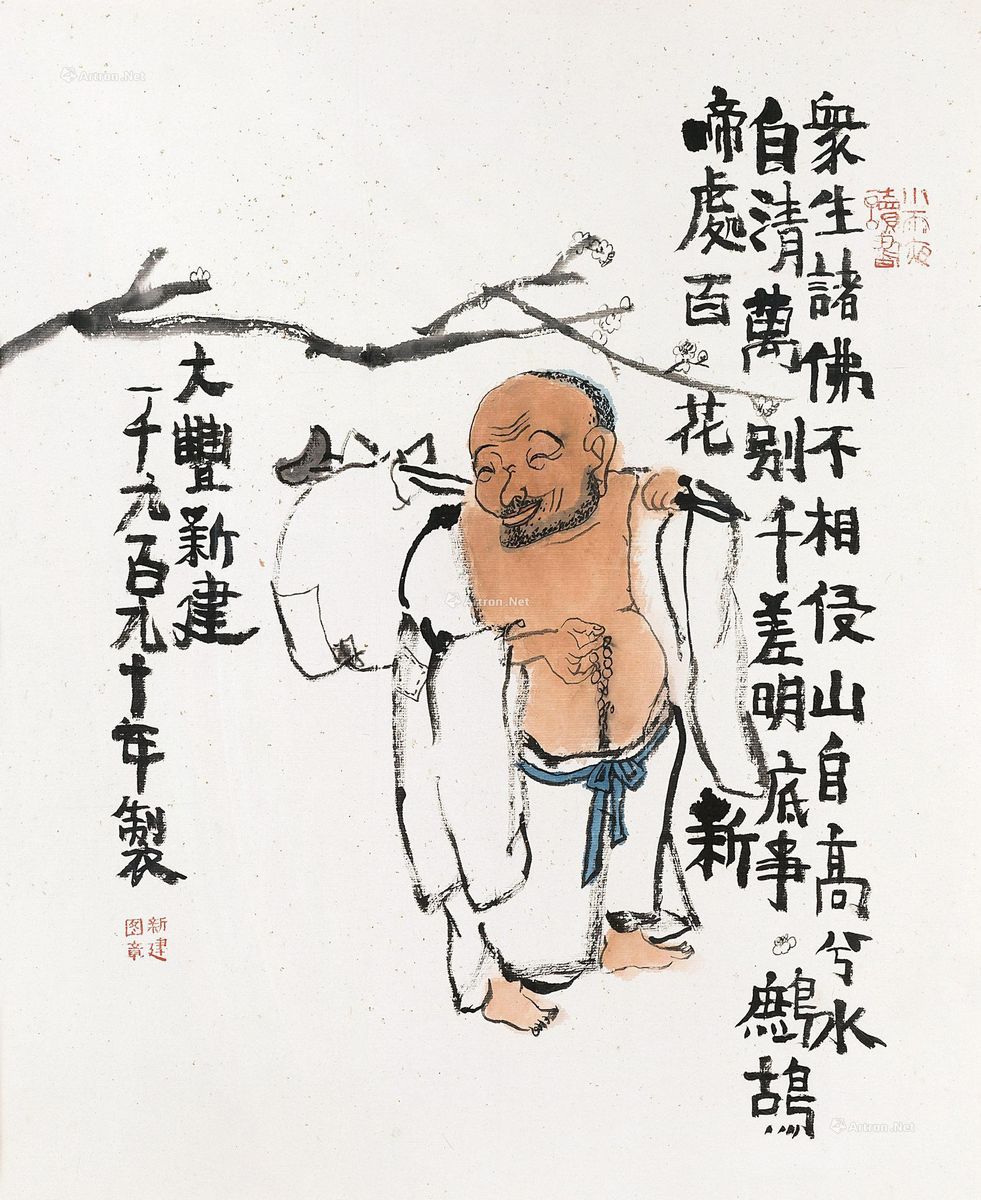 小雨夜
讀書
衆生諸佛不相侵山自高兮水
自清萬别千差明底事鷓鴣
啼處百花新
大豐新建
一千九百九十年製
新建
图章
Artron.Net
Artron.Net
Artron.Net